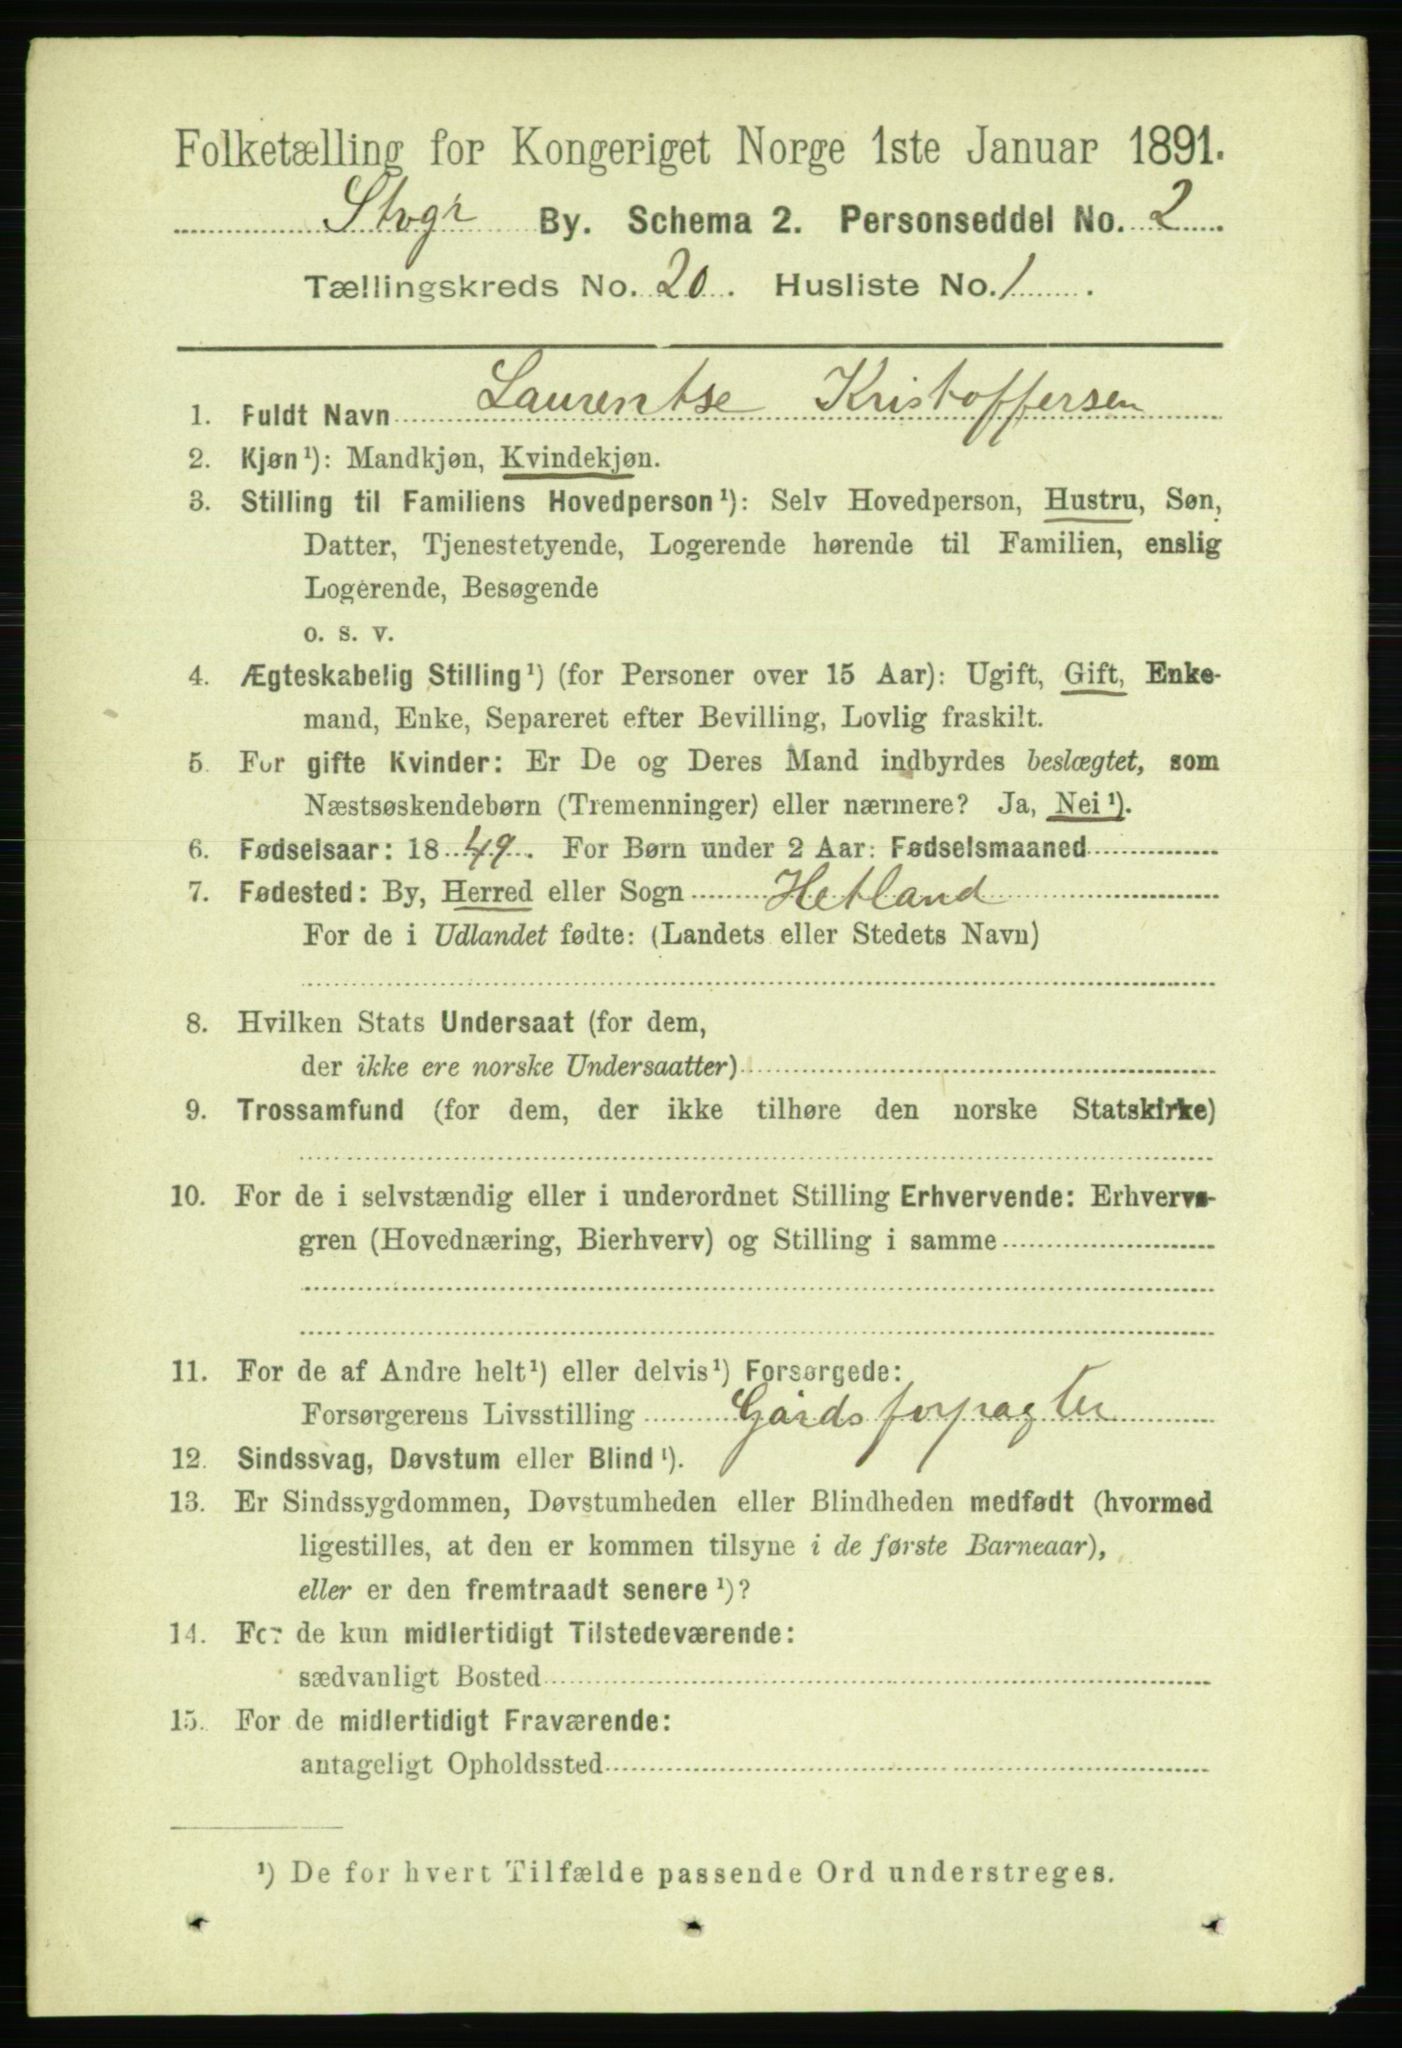 Folketælling for Kongeriget Norge 1ste Januar 1891.
Stvgr By. Schema 2. Personseddel No. 2
Tællingskreds No. 20. Husliste No. 1.
1. Fuldt Navn Laurentse Kristoffersen
2. Kjøn¹): Mandkjøn, Kvindekjøn.
3. Stilling til Familiens Hovedperson¹): Selv Hovedperson, Hustru, Søn,
Datter, Tjenestetyende, Logerende hørende til Familien, enslig
Logerende, Besøgende
o. s. v.
4. Ægteskabelig Stilling¹) (for Personer over 15 Aar): Ugift, Gift, Enke-
mand, Enke, Separeret efter Bevilling, Lovlig fraskilt.
5. For gifte Kvinder: Er De og Deres Mand indbyrdes beslægtet, som
Næstsøskendebørn (Tremenninger) eller nærmere? Ja, Nei¹).
6. Fødselsaar: 1849. For Børn under 2 Aar: Fødselsmaaned
7. Fødested: By, Herred eller Sogn Hetland
For de i Udlandet fødte: (Landets eller Stedets Navn)
8. Hvilken Stats Undersaat (for dem,
der ikke ere norske Undersaatter)
9. Trossamfund (for dem, der ikke tilhøre den norske Statskirke)
10. For de i selvstændig eller i underordnet Stilling Erhvervende: Erhvervs-
gren (Hovednæring, Bierhverv) og Stilling i samme
11. For de af Andre helt¹) eller delvis¹) Forsørgede:
Forsørgerens Livsstilling Gårdsforpagter
12. Sindssvag, Døvstum eller Blind¹).
13. Er Sindssygdommen, Døvstumheden eller Blindheden medfødt (hvormed
ligestilles, at den er kommen tilsyne i de første Barneaar),
eller er den fremtraadt senere¹)?
14. For de kun midlertidigt Tilstedeværende:
sædvanligt Bosted
15. For de midlertidigt Fraværende:
antageligt Opholdssted
¹) De for hvert Tilfælde passende Ord understreges.